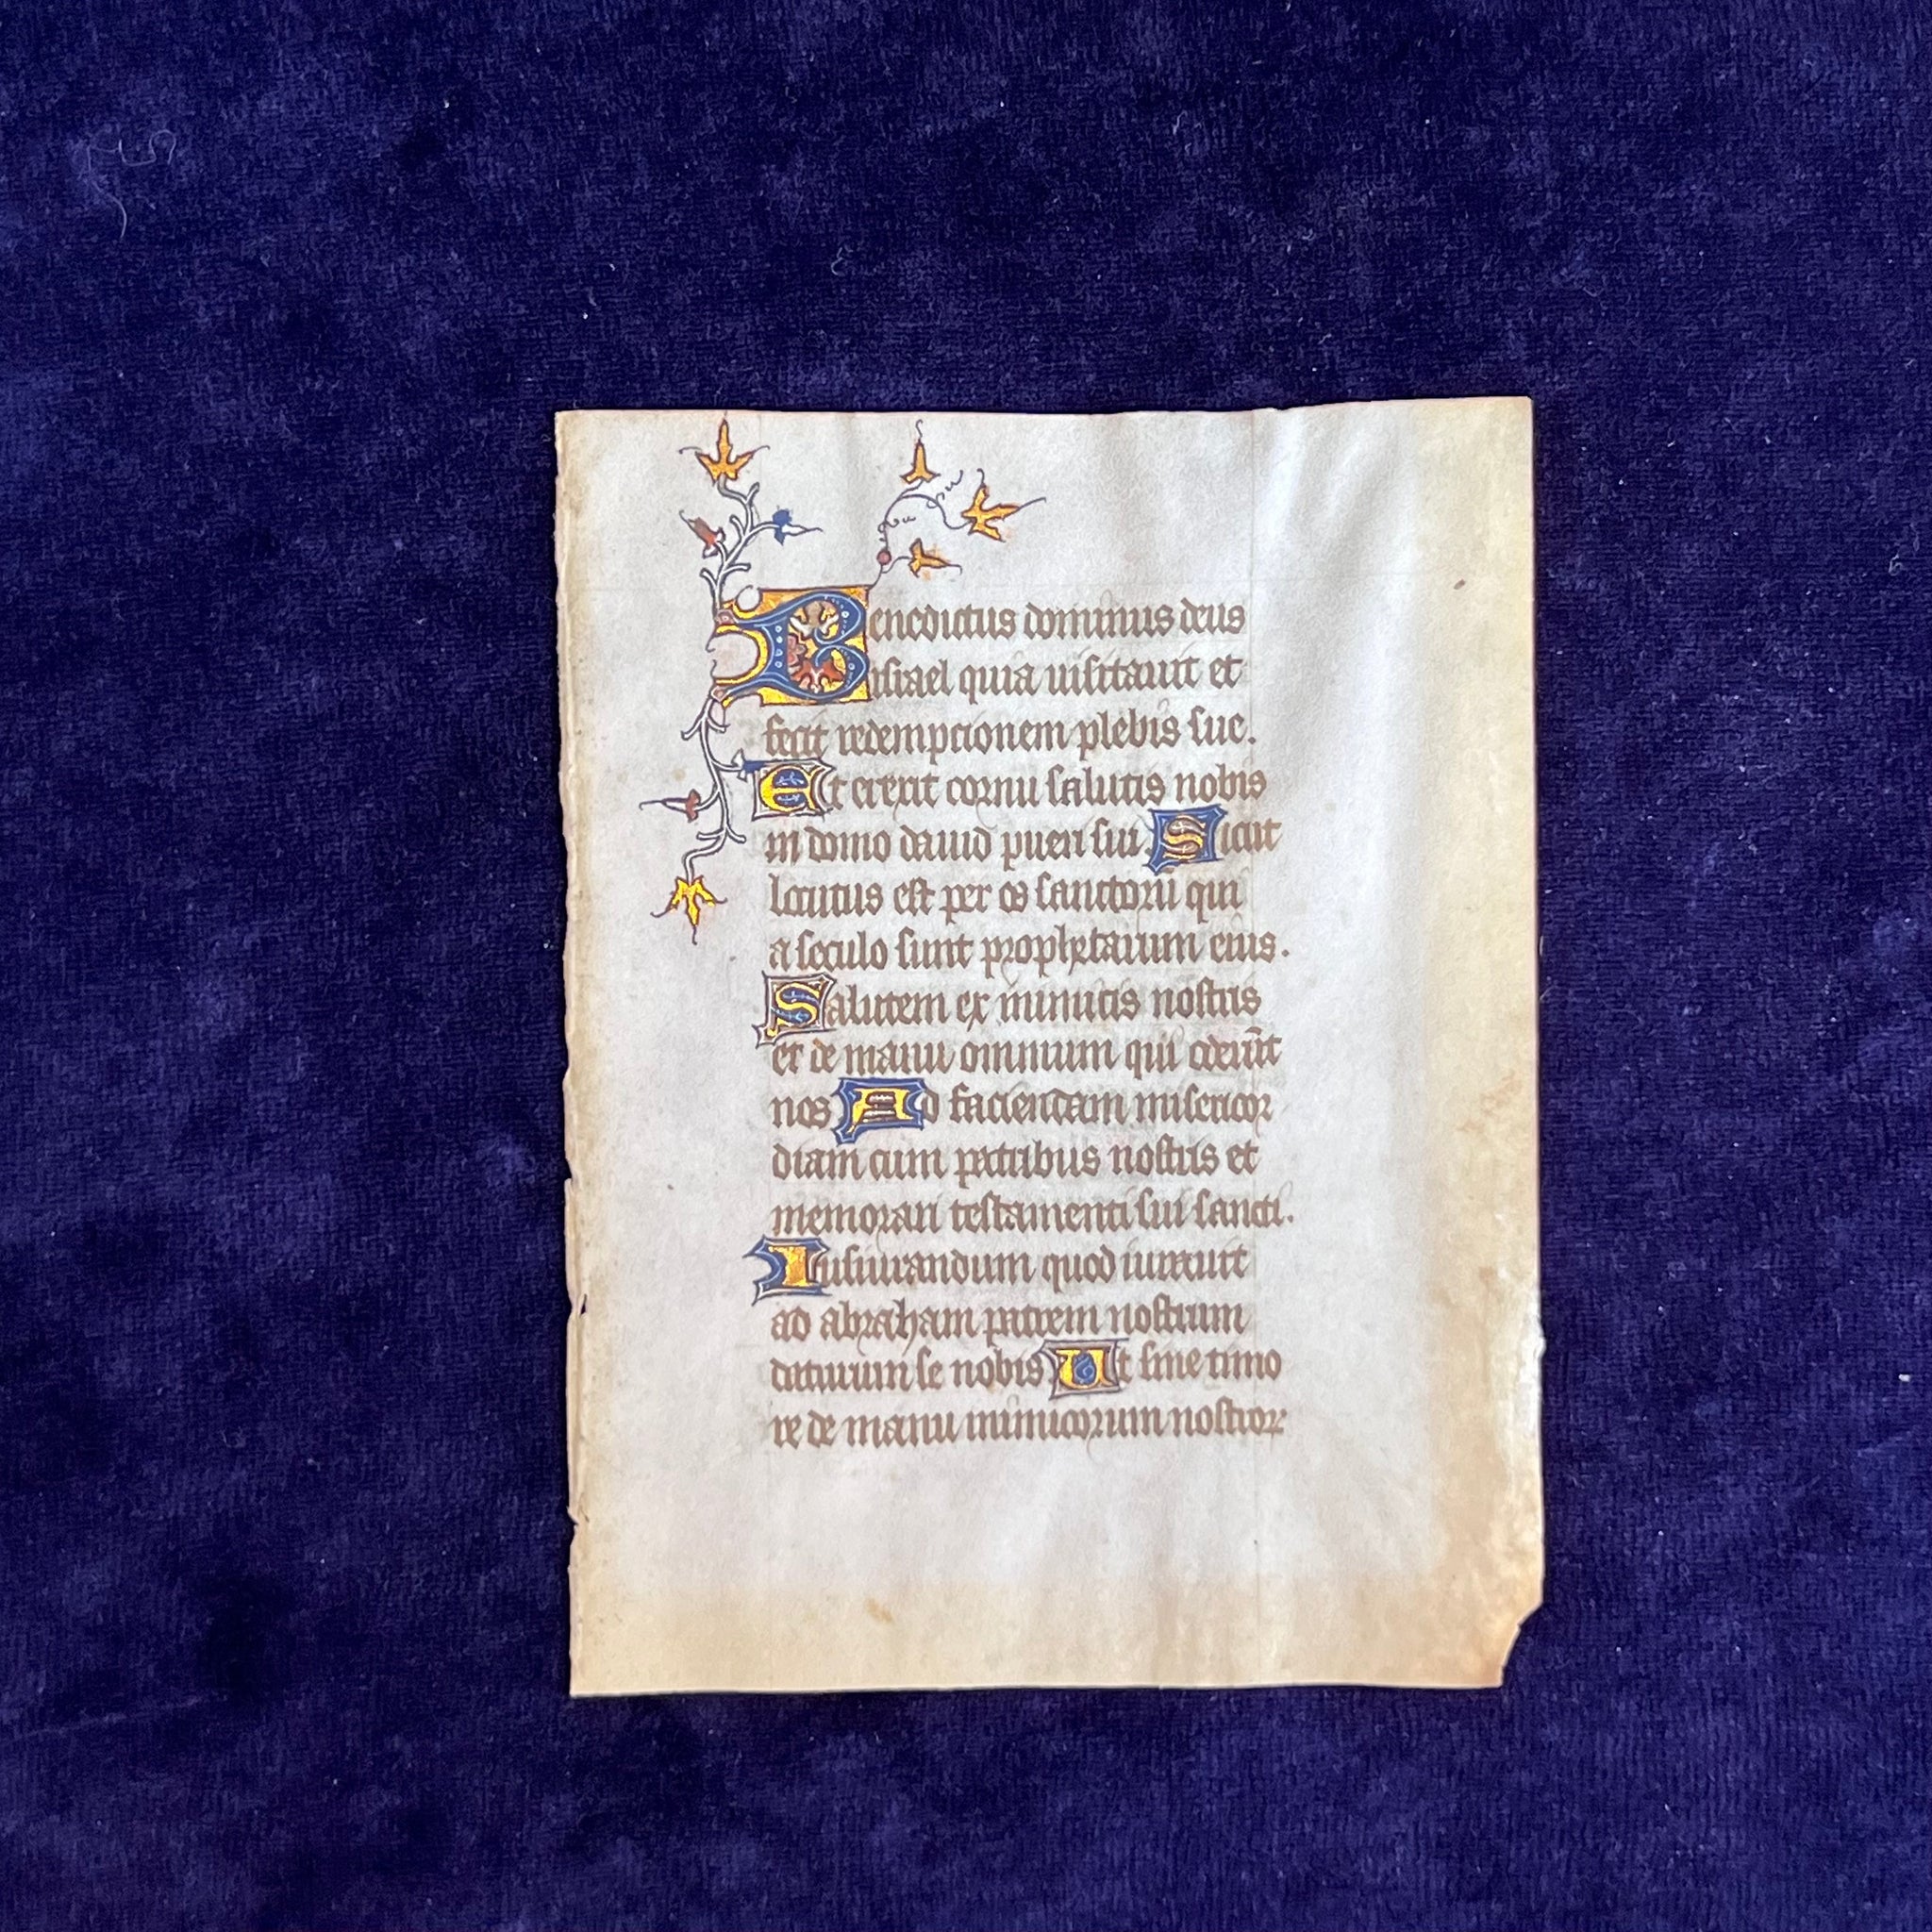 Benedictus dominus deus
israel quia uisitauit et
fecit redempcionem plebis sue.
Et erexit cornu salutis nobis
in domo dauid pueri sui. Sicut
locutus est per os sanctorū qui
a seculo sunt prophetarum eius.
Salutem ex inimicis nostris
et de manu omnium qui oderūt
nos Ad faciendam misericor
diam cum patribus nostris et
memorari testamenti sui sancti.
Iusiurandum quod iurauit
ad abraham patrem nostrum
daturum se nobis Ut sine timo
re de manu inimicorum nostroꝝ